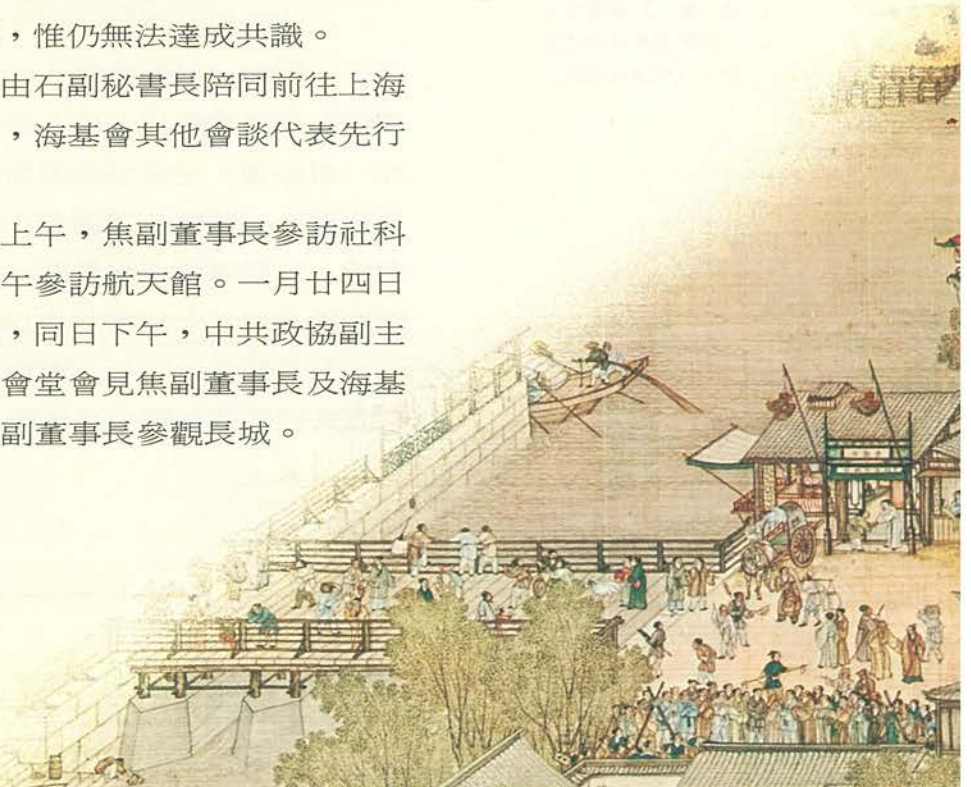 ，惟仍無法達成共識。
由石副秘書長陪同前往上海
，海基會其他會談代表先行
上午，焦副董事長參訪社科
午參訪航天館。一月廿四日
，同日下午，中共政協副主
會堂會見焦副董事長及海基
副董事長參觀長城。